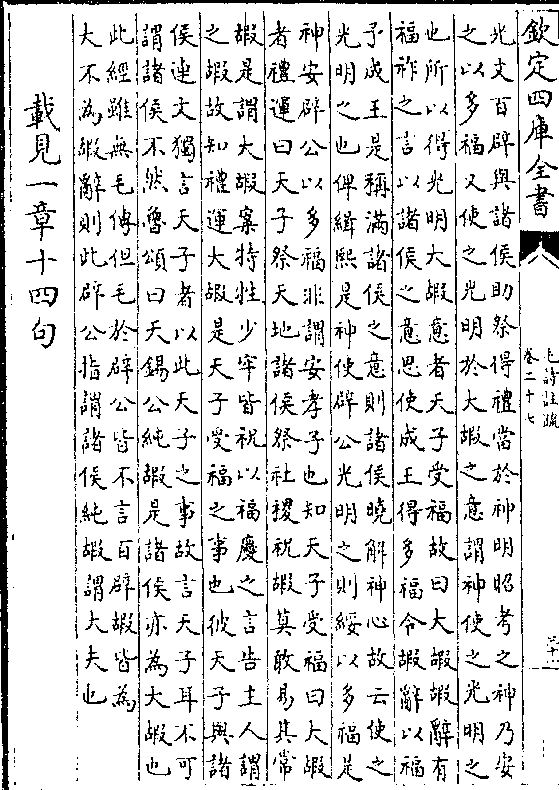 欽定四庫全書
毛詩註疏
卷二十七
光文百辟與諸侯助祭得禮當於神明昭考之神乃安
之以多福又使之光明於大嘏之意謂神使之光明之
也所以得光明大嘏意者天子受福故曰大嘏嘏辭有
福祚之言以諸侯之意思使成王得多福令嘏辭以福
予成王是稱滿諸侯之意則諸侯曉解神心故云使之
光明之也俾緝熙是神使辟公光明之則綏以多福是
神安辟公以多福非謂安孝子也知天子受福曰大嘏
者禮運曰天子祭天地諸侯祭社稷祝嘏莫敢易其常
嘏是謂大嘏案特牲少牢皆祝以福慶之言告主人謂
之嘏故知禮運大嘏是天子受福之事也彼天子與諸
侯連文獨言天子者以此天子之事故言天子耳不可
謂諸侯不然魯頌曰天錫公純嘏是諸侯亦為大嘏也
此經雖無毛傳但毛於辟公皆不言百辟嘏皆為
大不為嘏辭則此辟公指謂諸侯純嘏謂大夫也
載見一章十四句